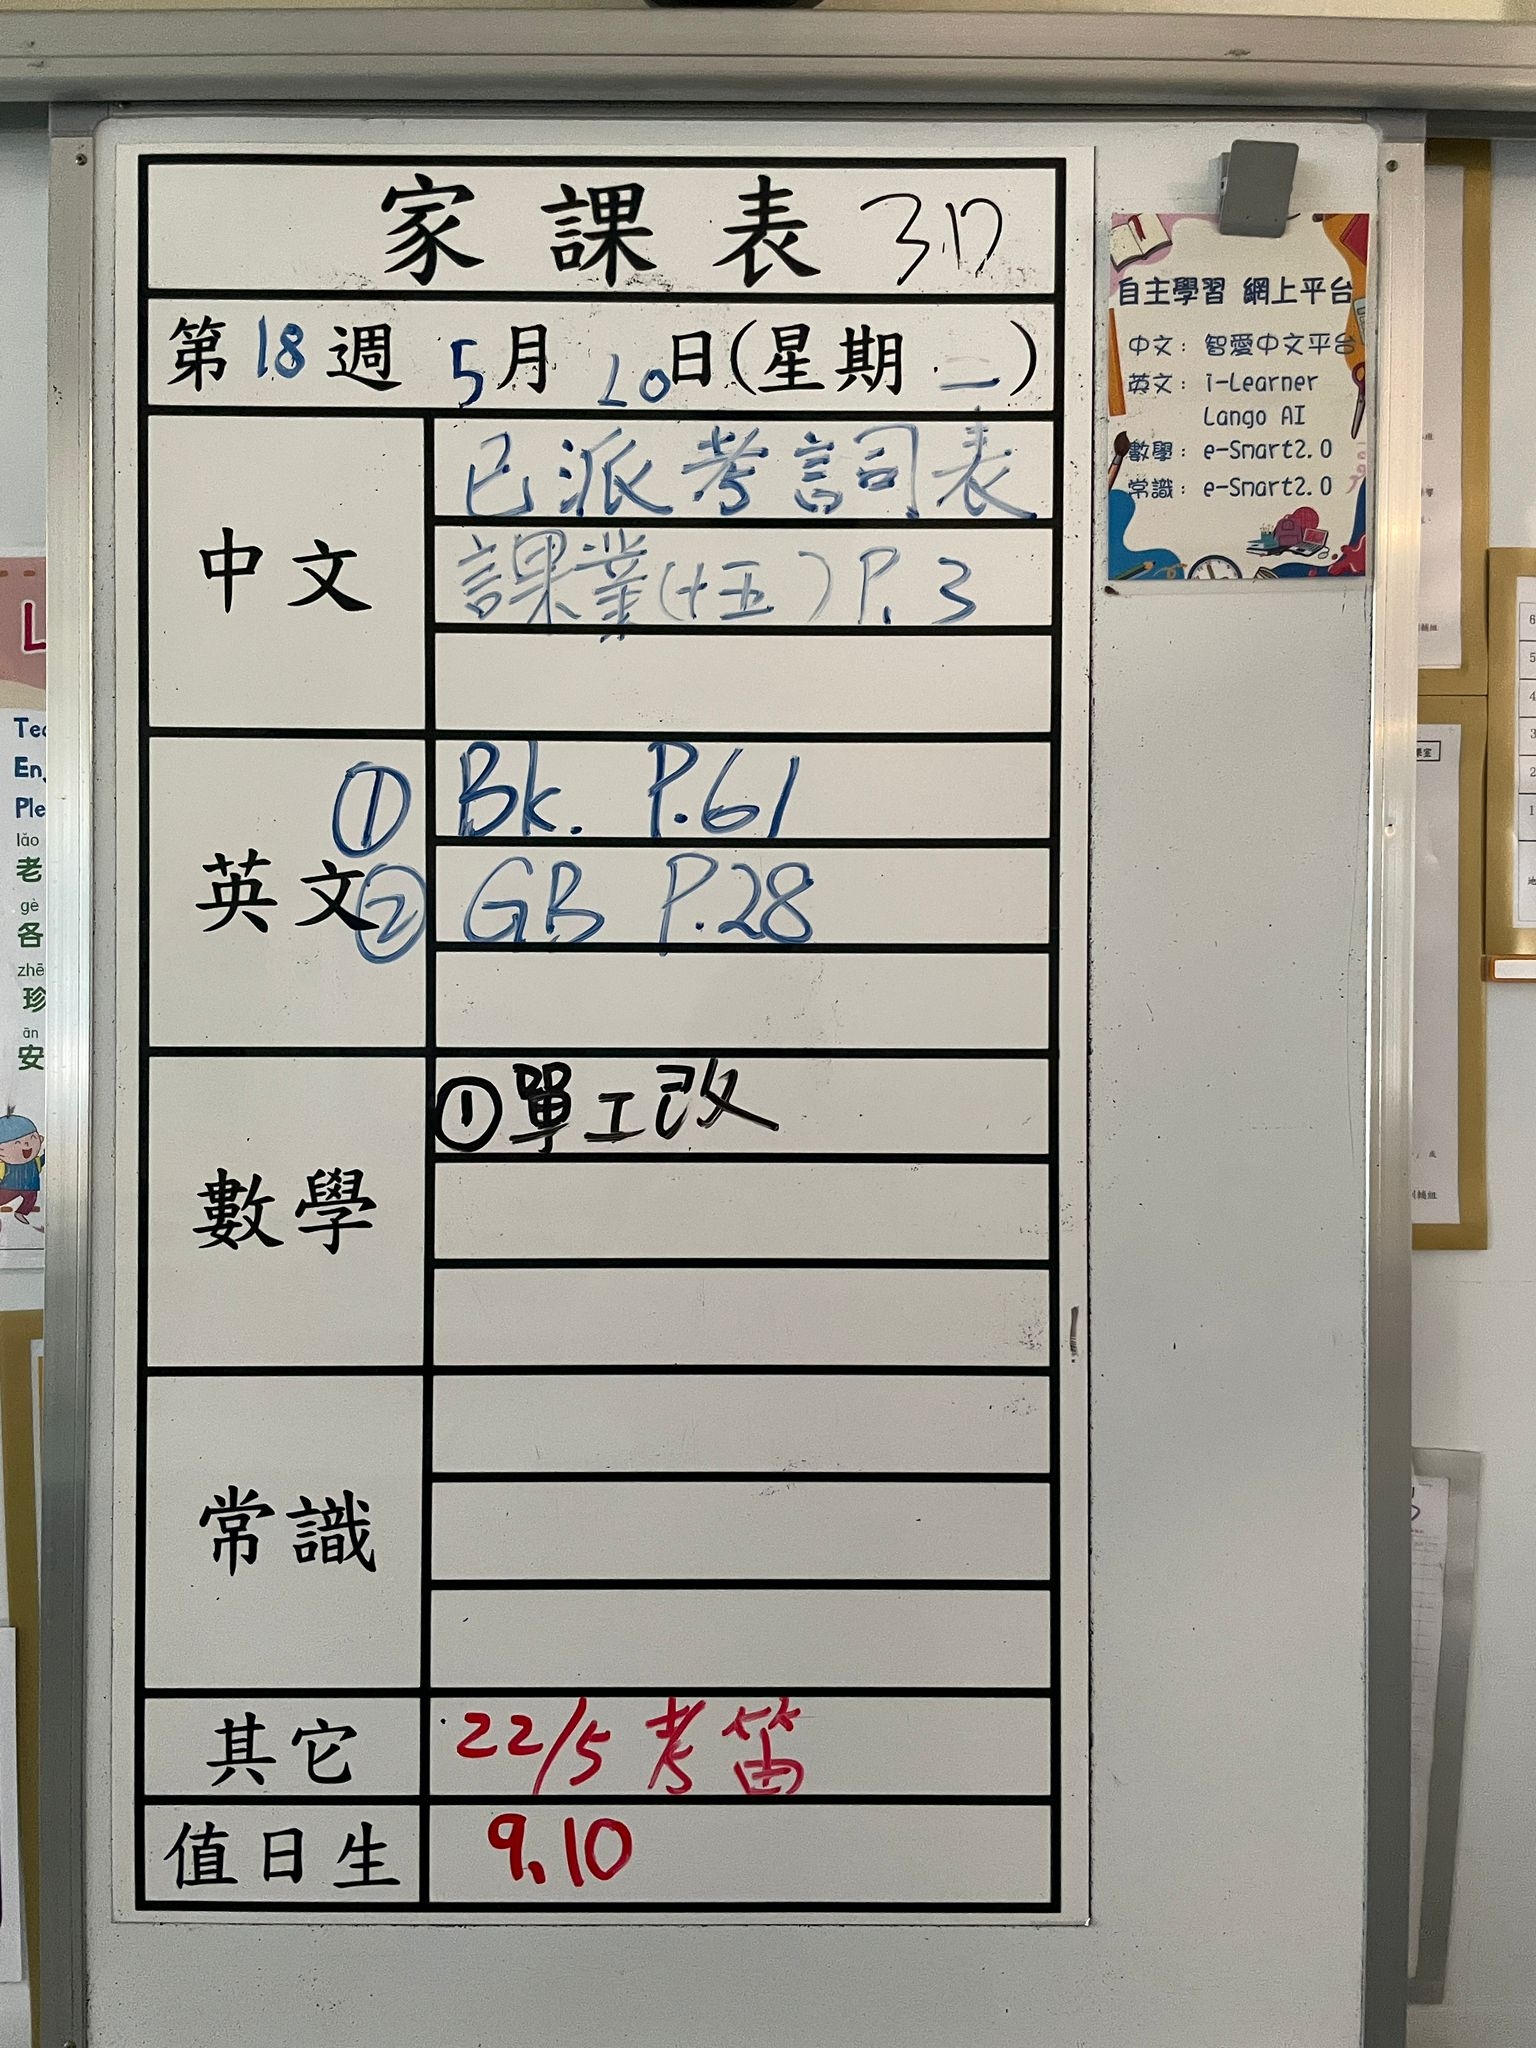 家課表 3D
第18週 5月20日(星期二)
中文
已派考詞表
課業(十五) P.3
英文
① Bk. P.61
② GB P.28
數學
①單工改
常識
其它
22/5 考笛
值日生
9,10
自主學習 網上平台
中文: 智愛中文平台
英文: i-Learner
Lango AI
數學: e-Smart2.0
常識: e-Smart2.0
lǎo
老
gè
各
zhē
珍
ān
安